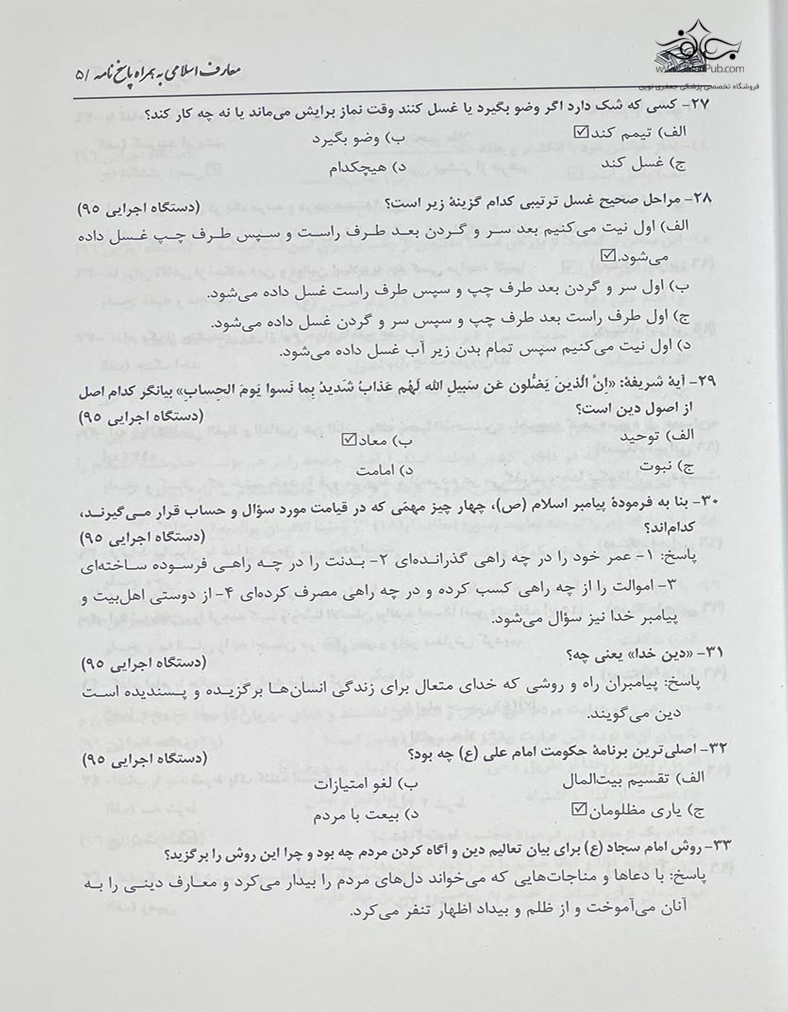 معارف اسلامی به همراه پاسخ نامه / ۵
Pub.com
فروشگاه تخصصی پزشکی جعفری نوین
۲۷- کسی که شک دارد اگر وضو بگیرد یا غسل کنند وقت نماز برایش می‌ماند یا نه چه کار کند؟
الف) تیمم کند☑ ب) وضو بگیرد
ج) غسل کند د) هیچکدام
۲۸- مراحل صحیح غسل ترتیبی کدام گزینهٔ زیر است؟ (دستگاه اجرایی ۹۵)
الف) اول نیت می‌کنیم بعد سر و گردن بعد طرف راست و سپس طرف چپ غسل داده
می‌شود.☑
ب) اول سر و گردن بعد طرف چپ و سپس طرف راست غسل داده می‌شود.
ج) اول طرف راست بعد طرف چپ و سپس سر و گردن غسل داده می‌شود.
د) اول نیت می‌کنیم سپس تمام بدن زیر آب غسل داده می‌شود.
۲۹- آیهٔ شریفهٔ: «اِنُ الّذینَ یَضُلون عَن سَبیلِ الله لَهُم عَذابُ شَدیدُ بِما نَسوا یَومَ الحِسابِ» بیانگر کدام اصل
از اصول دین است؟ (دستگاه اجرایی ۹۵)
الف) توحید ب) معاد☑
ج) نبوت د) امامت
۳۰- بنا به فرمودهٔ پیامبر اسلام (ص)، چهار چیز مهمّی که در قیامت مورد سؤال و حساب قرار می‌گیرند،
کدام‌اند؟ (دستگاه اجرایی ۹۵)
پاسخ: ۱- عمر خود را در چه راهی گذرانده‌ای ۲- بدنت را در چه راهی فرسوده ساخته‌ای
۳- اموالت را از چه راهی کسب کرده و در چه راهی مصرف کرده‌ای ۴- از دوستی اهل‌بیت و
پیامبر خدا نیز سؤال می‌شود.
۳۱- «دین خدا» یعنی چه؟ (دستگاه اجرایی ۹۵)
پاسخ: پیامبران راه و روشی که خدای متعال برای زندگی انسان‌ها برگزیده و پسندیده است
دین می‌گویند.
۳۲- اصلی‌ترین برنامهٔ حکومت امام علی (ع) چه بود؟ (دستگاه اجرایی ۹۵)
الف) تقسیم بیت‌المال ب) لغو امتیازات
ج) یاری مظلومان☑ د) بیعت با مردم
۳۳- روش امام سجاد (ع) برای بیان تعالیم دین و آگاه کردن مردم چه بود و چرا این روش را برگزید؟
پاسخ: با دعاها و مناجات‌هایی که می‌خواند دل‌های مردم را بیدار می‌کرد و معارف دینی را به
آنان می‌آموخت و از ظلم و بیداد اظهار تنفر می‌کرد.